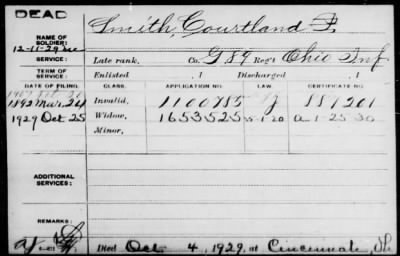 DEAD
Smith, Courtland
NAME OF SOLDIER:
12-11-29
SERVICE: Late rank, Co. G 89 Reg't Ohio Inf
TERM OF SERVICE: Enlisted , 1 Discharged , 1
DATE OF FILING. CLASS. APPLICATION NO. LAW CERTIFICATE NO.
1892 Mar. 24 Invalid, 1100785 189201
1929 Oct 25 Widow, 1653525 5-1-20 a 1-25-30
Minor,
ADDITIONAL SERVICES:
REMARKS:
Died Oct 4, 1929, at Cincinnati, Oh